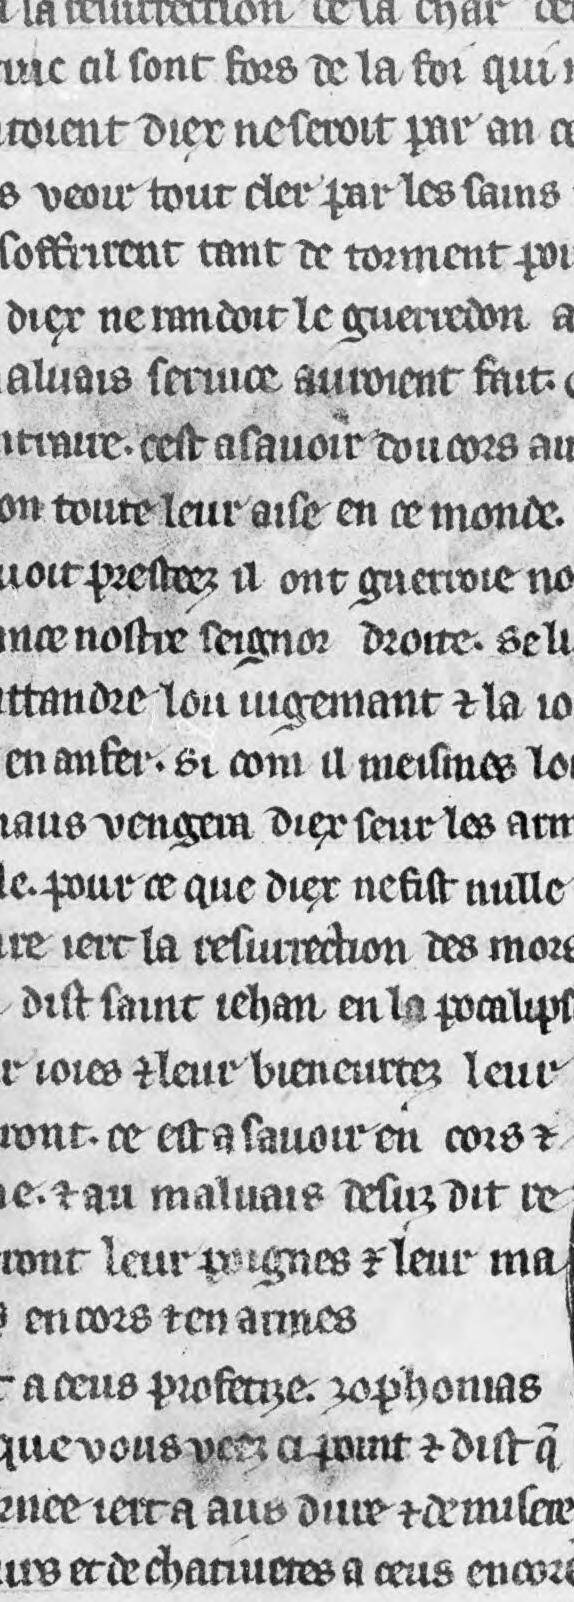 la resurrection de la char
al sont fors de la foi qui
roient diex ne seroit par an
s veoir tout cler par les sains
soffrirent tant de torment pou
diex ne randoit le guerredon a
aluais seruice auroient fait.
ntraire. cest asauoir dou cors au
on toute leur aise en ce monde.
uoit presteez il ont guerroie no
nce nostre seignor droite. se li
attandre lou iugemant ⁊ la io
en anfer. si com il meismes lo
aus vengera diex seur les arm
le. pour ce que diex ne fist nulle
re iert la resurrection des mors
dist saint iehan en la pocalips
r ioies ⁊ leur bieneurtez leur
ront. ce est a sauoir en cors ⁊
e. ⁊ au maluais desuz dit re
ront leur poignes ⁊ leur ma
en cors ⁊ en armes
a ceus profetize. zophonias
que vous veez ci point ⁊ dist q̄
rnee iert a aus dure ⁊ de misere
urs et de chatiuetes a ceus encore